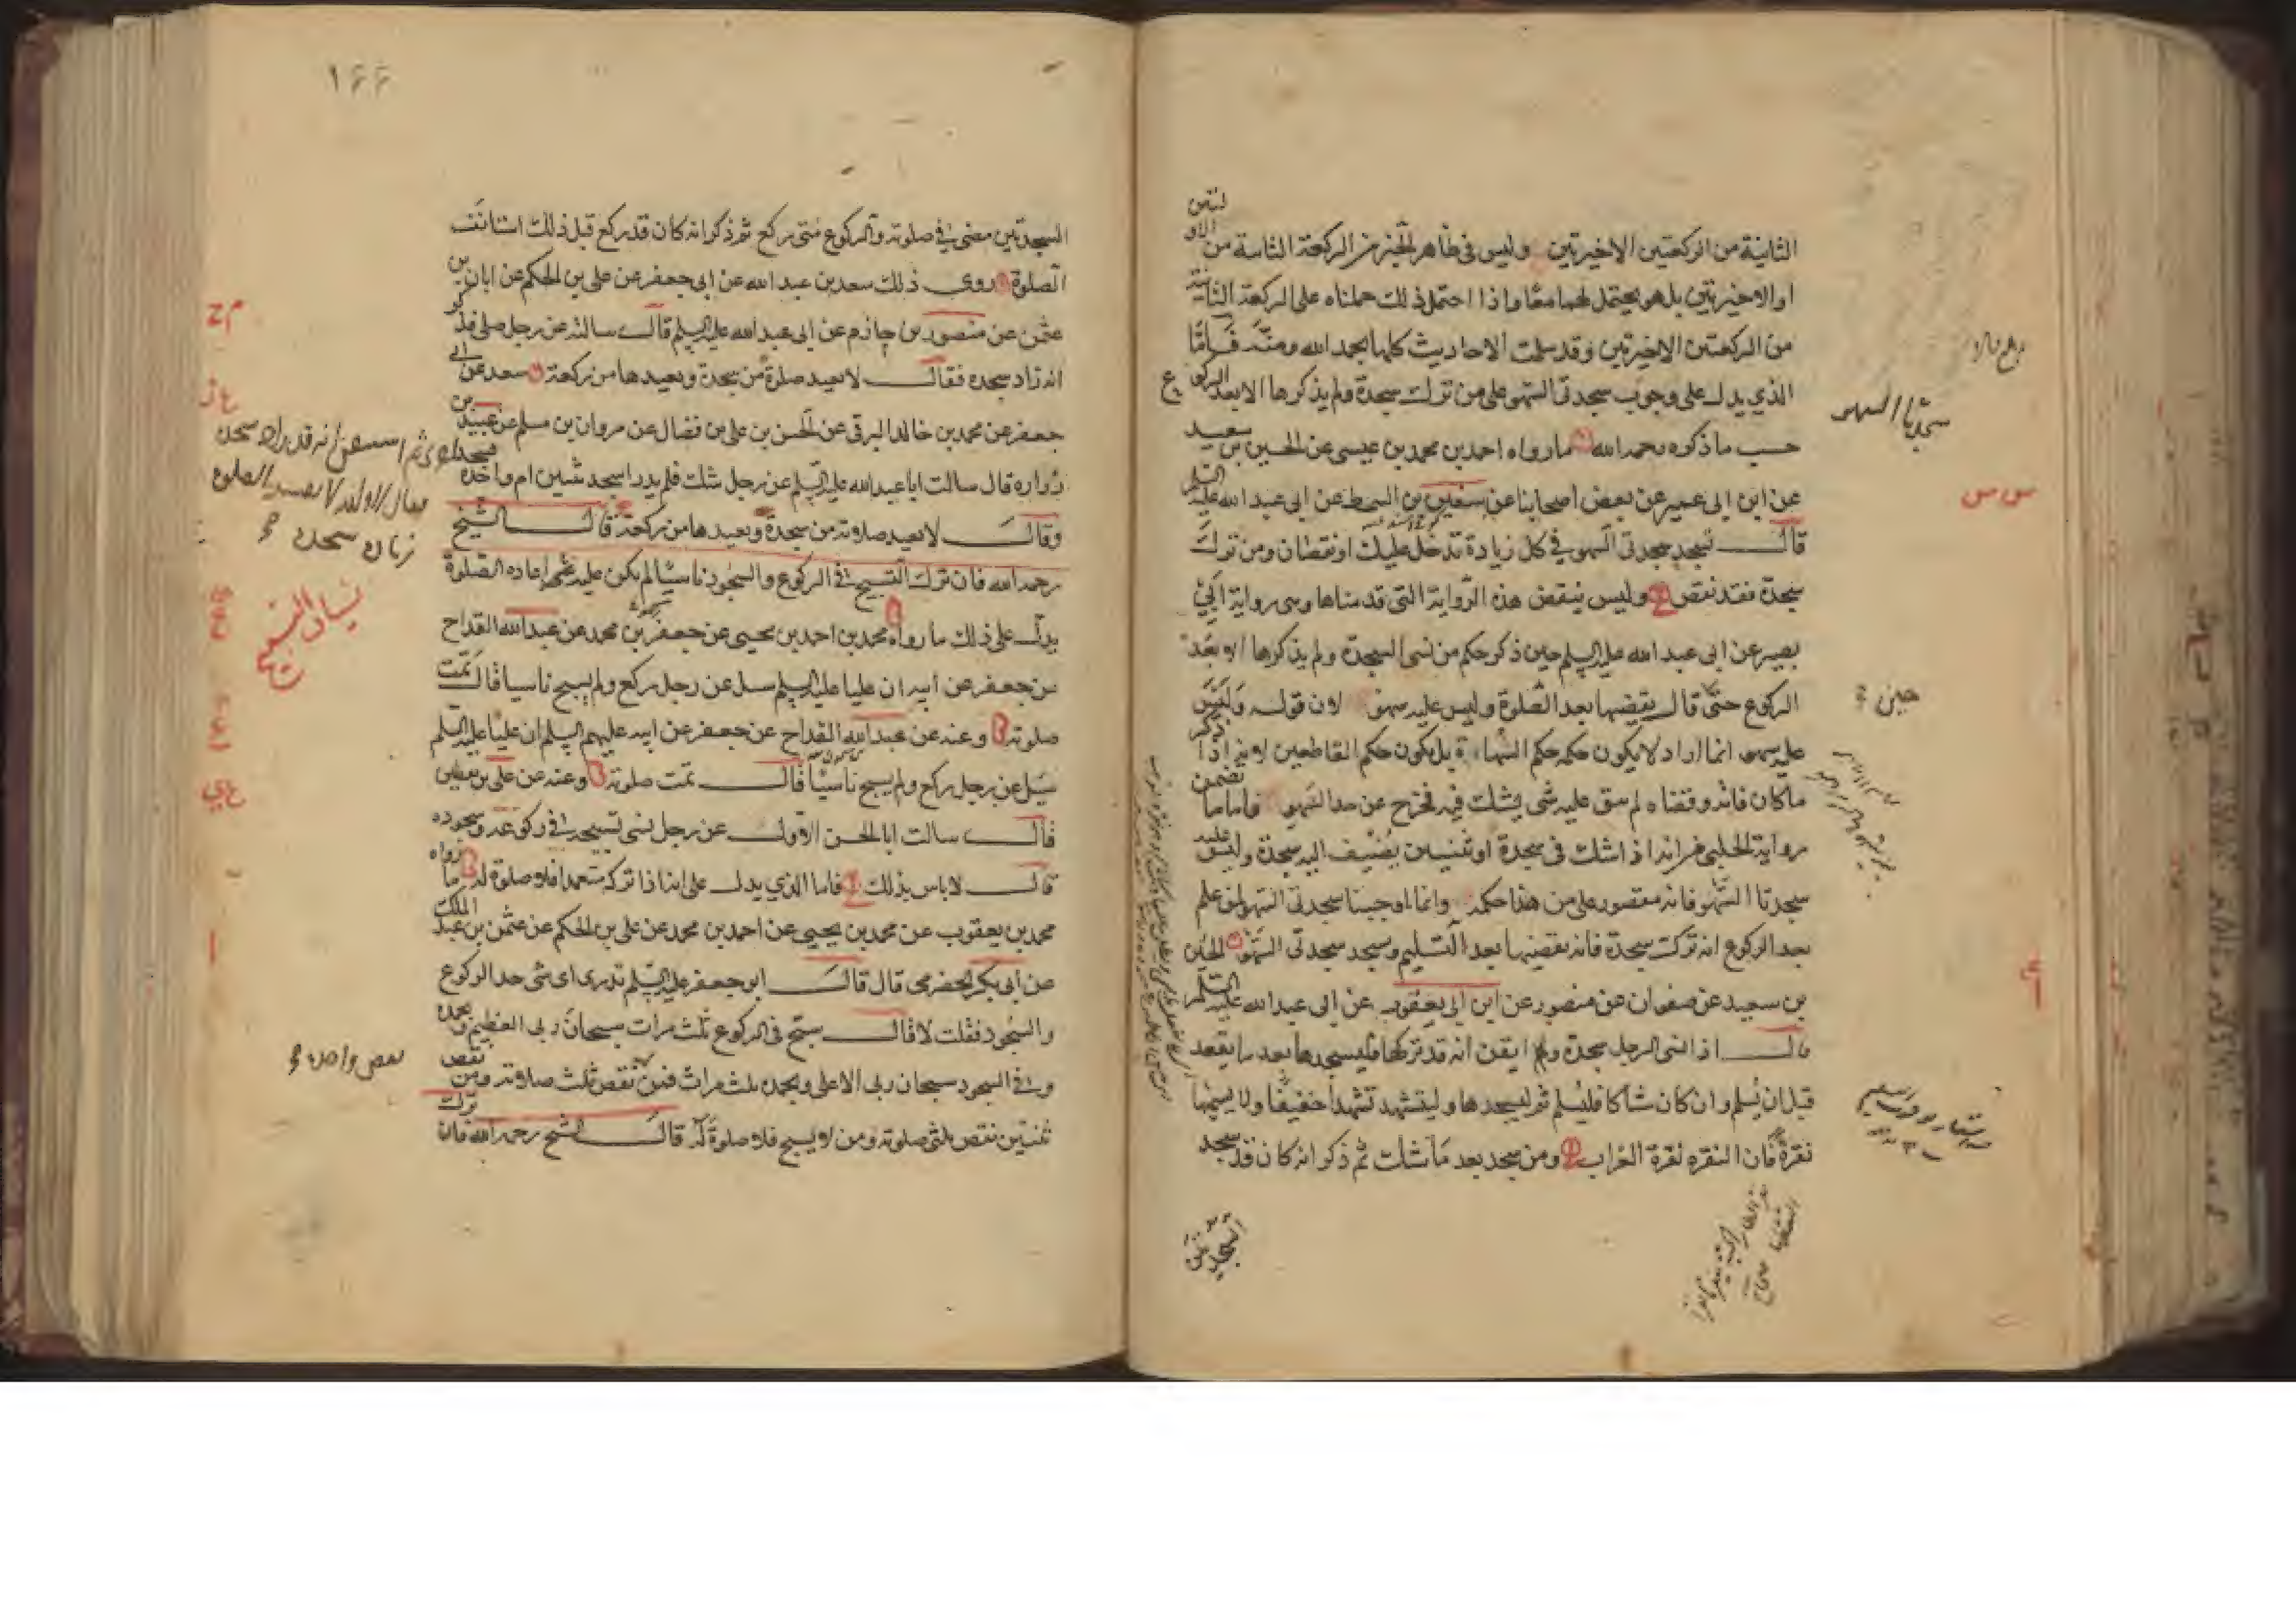 الثانية من الركعتين الاخيرتين وليس في ظاهر الخبر من الركعة الثانية من الاولتين
او الاخيرتين بل هو يحتمل لهما معا واذا احتمل ذلك حملناه على الركعة الثانية
من الركعتين الاخيرتين وقد سلمت الاحاديث كلها بحمد الله ومنه فاما
الذي يدل على وجوب سجدتي السهو على من ترك سجدة ولم يذكرها الا بعد الركوع
حسب ما ذكره رحمه الله ما رواه احمد بن محمد بن عيسى عن الحسين بن سعيد
عن ابن ابي عمير عن بعض اصحابنا عن سفين بن السمط عن ابي عبد الله عليه السلم
قال تسجد سجدتي السهو في كل زيادة تدخل عليك او نقصان ومن ترك
سجدة فقد نقص وليس ينقض هذه الرواية التي قدمناها وهي رواية ابي
بصير عن ابي عبد الله عليه السلم حين ذكر حكم من نسي السجدة ولم يذكرها الا بعد
الركوع حتى قال يقضيها بعد الصلوة وليس عليه سهو لان قوله وليس
عليه سهو انما اراد لا يكون حكمه حكم السهاة بل يكون حكم القاطعين لانه اذا ذكر
ما كان فاته وقضاه لم يبق عليه شي يشك فيه فخرج عن حد السهو فاما ما تضمن
رواية الحلبي من انه اذا شك في سجدة او ثنتين يضيف اليه سجدة وليس عليه
سجدتا السهو فانه مقصور على من هذا حكمه وانما اوجبنا سجدتي السهو لمن علم
بعد الركوع انه ترك سجدة فانه يقضيها بعد التسليم ويسجد سجدتي السهو الحسين
بن سعيد عن صفوان عن منصور عن ابن ابي يعفور عن ابي عبد الله عليه السلم
قال اذا نسي الرجل سجدة وايقن انه قد تركها فليسجدها بعد ما يقعد
قبل ان يسلم وان كان شاكا فليسلم ثم ليسجدها وليتشهد تشهدا خفيفا ولا يسميها
نقرة فان النقرة نقرة الغراب ومن سجد بعد ما شك ثم ذكر انه كان قد سجد
السجدتين
سجدتا السهو
حين
١٦٦
السجدتين مضى في صلوته والركوع متى ركع ثم ذكر انه كان قد ركع قبل ذلك استانف
الصلوة روى ذلك سعد بن عبد الله عن ابي جعفر عن علي بن الحكم عن ابان بن
عثمن عن منصور بن حازم عن ابي عبد الله عليه السلم قال سالته عن رجل صلى فذكر
انه زاد سجدة فقال لا يعيد صلوة من سجدة ويعيدها من ركعة سعد عن ابي
جعفر عن محمد بن خالد البرقي عن الحسن بن علي بن فضال عن مروان بن مسلم عن عبيد بن
زرارة قال سالت ابا عبد الله عليه السلم عن رجل شك فلم يدر اسجد ثنتين ام واحدة
وقال لا يعيد صلوته من سجدة ويعيدها من ركعة قال الشيخ
رحمه الله فان ترك التسبيح في الركوع والسجود ناسيا لم يكن عليه اعادة الصلوة
يدل على ذلك ما رواه محمد بن احمد بن يحيى عن جعفر بن محمد عن عبد الله القداح
عن جعفر عن ابيه ان عليا عليه السلم سئل عن رجل ركع ولم يسبح ناسيا قال تمت
صلوته وعنه عن عبد الله القداح عن جعفر عن ابيه عليهم السلم ان عليا عليه السلم
سئل عن رجل ركع ولم يسبح ناسيا قال تمت صلوته وعنه عن علي بن يقطين
قال سالت ابا الحسن الاول عن رجل نسي تسبيحه في ركوعه وسجوده
قال لا باس بذلك فاما الذي يدل على انه اذا تركه متعمدا فلا صلوة له ما رواه
محمد بن يعقوب عن محمد بن يحيى عن احمد بن محمد عن علي بن الحكم عن عثمن بن عبد الملك
عن ابي بكر الحضرمي قال قال ابو جعفر عليه السلم تدري اي شي حد الركوع
والسجود فقلت لا قال سبح في الركوع ثلث مرات سبحان ربي العظيم وبحمده
وفي السجود سبحان ربي الاعلى وبحمده ثلث مرات فمن نقص ثلث صلوته ومن نقص
ثنتين نقص ثلثي صلوته ومن لا يسبح فلا صلوة له قال الشيخ رحمه الله فان ترك
نسيان التسبيح
نقص واحدة